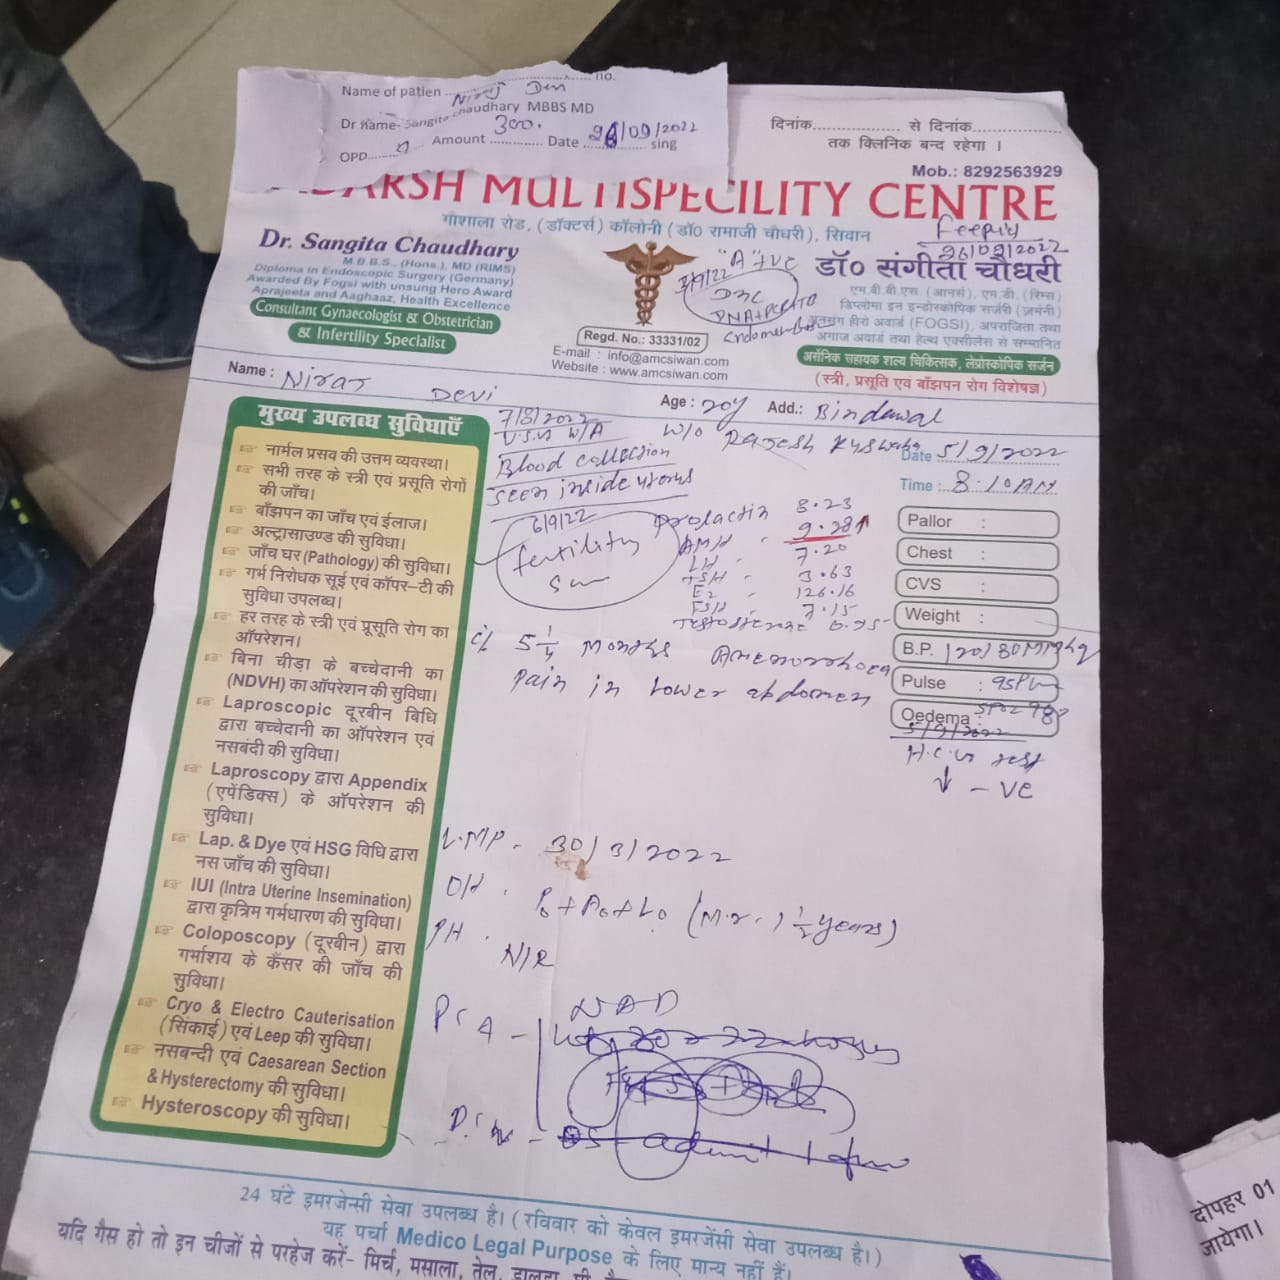 no.
Name of patien Niraj Devi
Dr name- Sangita chaudhary MBBS MD
OPD Amount 300. Date 26/09/2022 sing
दिनांक से दिनांक
तक क्लिनिक बन्द रहेगा ।
Mob.: 8292563929
ADARSH MULTISPECILITY CENTRE
गौशाला रोड, (डॉक्टर्स) कॉलोनी (डॉ० रामाजी चौधरी), सिवान
26/09/2022
Dr. Sangita Chaudhary
M.B.B.S., (Hons.), MD (RIMS)
Diploma in Endoscopic Surgery (Germany)
Awarded By Fogsi with unsung Hero Award
Aprajeeta and Aaghaaz, Health Excellence
Consultant Gynaecologist & Obstetrician
& Infertility Specialist
"A" +ve
D&C
Regd. No.: 33331/02
E-mail : info@amcsiwan.com
Website : www.amcsiwan.com
डॉ० संगीता चौधरी
एम.बी.बी.एस. (आनर्स), एम.डी. (रिम्स)
डिप्लोमा इन इन्डोस्कोपिक सर्जरी (जर्मनी)
अनसंग हीरो अवार्ड (FOGSI), अपराजिता तथा
अगाज अवार्ड तथा हेल्थ एक्सीलेंस से सम्मानित
असैनिक सहायक शल्य चिकित्सक, लेप्रोस्कोपिक सर्जन
(स्त्री, प्रसूति एवं बाँझपन रोग विशेषज्ञ)
Name : Niraj Devi Age : 20y Add.: Bindawal
W/O Rajesh Kushwaha
Date 5/9/2022
Time : 8.10AM
मुख्य उपलब्ध सुविधाएँ
नार्मल प्रसव की उत्तम व्यवस्था।
सभी तरह के स्त्री एवं प्रसूति रोगों
की जाँच।
बाँझपन का जाँच एवं ईलाज।
अल्ट्रासाउण्ड की सुविधा।
जाँच घर (Pathology) की सुविधा।
गर्भ निरोधक सूई एवं कॉपर-टी की
सुविधा उपलब्ध।
हर तरह के स्त्री एवं प्रसूति रोग का
ऑपरेशन।
बिना चीड़ा के बच्चेदानी का
(NDVH) का ऑपरेशन की सुविधा।
Laproscopic दूरबीन विधि
द्वारा बच्चेदानी का ऑपरेशन एवं
नसबंदी की सुविधा।
Laproscopy द्वारा Appendix
(एपेंडिक्स) के ऑपरेशन की
सुविधा।
Lap. & Dye एवं HSG विधि द्वारा
नस जाँच की सुविधा।
IUI (Intra Uterine Insemination)
द्वारा कृत्रिम गर्भधारण की सुविधा।
Coloposcopy (दूरबीन) द्वारा
गर्भाशय के कैंसर की जाँच की
सुविधा।
Cryo & Electro Cauterisation
(सिंकाई) एवं Leep की सुविधा।
नसबन्दी एवं Caesarean Section
& Hysterectomy की सुविधा।
Hysteroscopy की सुविधा।
7/8/2022
U.S.G W/A
Blood collection
seen inside uterus
6/9/22
fertility
Prolactin 8.23
AMH 9.28↑
LH 7.20
TSH 3.63
E2 126.16
FSH 7.15
Testosterone
Pallor :
Chest :
CVS :
Weight :
B.P. 120/80MMHg
Pulse : 95
Oedema SPO2 98%
5/9/2022
H.C.G test
↓ -VE
c/o 5 1/4 Months Amenorrhoea
Pain in lower abdomen
L.MP. 30/3/2022
OH. P0+A0+L0 (M.r. 1 1/2 years)
PH. N/R
P/A - NAD
24 घंटे इमरजेन्सी सेवा उपलब्ध है। ( रविवार को केवल इमरजेंसी सेवा उपलब्ध है।)
यह पर्चा Medico Legal Purpose के लिए मान्य नहीं हैं।
यदि गैस हो तो इन चीजों से परहेज करें- मिर्च, मसाला, तेल, डालडा
दोपहर 01
जायेगा।